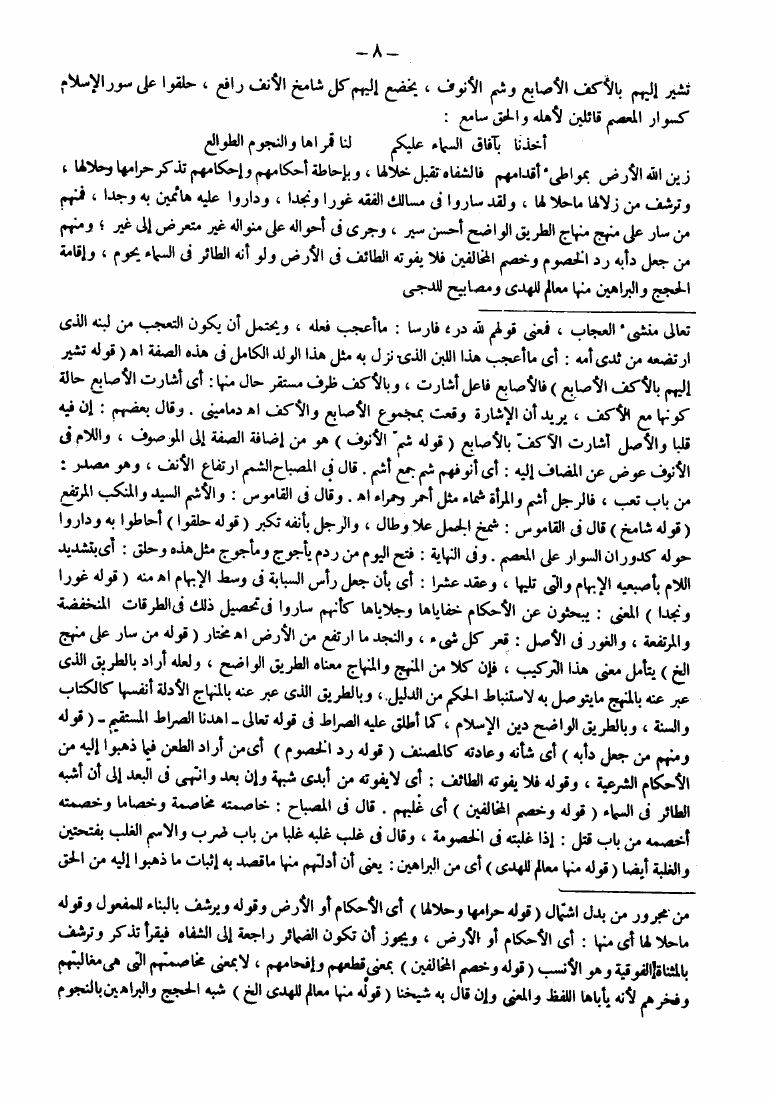 — ٨ —
تشير إليهم بالأكف الأصابع وشم الأنوف ، يخضع إليهم كل شامخ الأنف رافع ، حلقوا على سور الإسلام
كسوار المعصم قائلين لأهله والحق سامع :
أخذنا بآفاق السماء عليكم لنا قمراها والنجوم الطوالع
زين الله الأرض بمواطىء أقدامهم فالشفاه تقبل خلالها ، وبإحاطة أحكامهم وإحكامهم تذكر حرامها وحلالها ،
وترشف من زلالها ماحلا لها ، ولقد ساروا فى مسالك الفقه غورا ونجدا ، وداروا عليه هائمين به وجدا ، فمنهم
من سار على منهج منهاج الطريق الواضح أحسن سير ، وجرى فى أحواله على منواله غير متعرض إلى غير ؛ ومنهم
من جعل دأبه رد الخصوم وخصم المخالفين فلا يفوته الطائف فى الأرض ولو أنه الطائر فى السماء يحوم ، وإقامة
الحجج والبراهين منها معالم للهدى ومصابيح للدجى
تعالى منشىء العجاب ، فمعنى قولهم لله دره فارسا : ماأعجب فعله ، ويحتمل أن يكون التعجب من لبنه الذى
ارتضعه من ثدى أمه : أى ماأعجب هذا اللبن الذى نزل به مثل هذا الولد الكامل فى هذه الصفة اه ( قوله تشير
إليهم بالأكف الأصابع ) فالأصابع فاعل أشارت ، وبالأكف ظرف مستقر حال منها : أى أشارت الأصابع حالة
كونها مع الأكف ، يريد أن الإشارة وقعت بمجموع الأصابع والأكف اه دمامينى . وقال بعضهم : إن فيه
قلبا والأصل أشارت الأكف بالأصابع ( قوله شم الأنوف ) هو من إضافة الصفة إلى الموصوف ، واللام فى
الأنوف عوض عن المضاف إليه : أى أنوفهم شم جمع أشم . قال فى المصباح الشمم ارتفاع الأنف ، وهو مصدر :
من باب تعب ، فالرجل أشم والمرأة شماء مثل أحمر وحمراء اه . وقال فى القاموس : والأشم السيد والمنكب المرتفع
( قوله شامخ ) قال فى القاموس : شمخ الجبل علا وطال ، والرجل بأنفه تكبر ( قوله حلقوا ) أحاطوا به وداروا
حوله كدوران السوار على المعصم . وفى النهاية : فتح اليوم من ردم يأجوج ومأجوج مثل هذه وحلق : أى بتشديد
اللام بأصبعيه الإبهام والتى تليها ، وعقد عشرا : أى بأن جعل رأس السبابة فى وسط الإبهام اه منه ( قوله غورا
ونجدا ) المعنى : يبحثون عن الأحكام خفاياها وجلاياها كأنهم ساروا فى تحصيل ذلك فى الطرقات المنخفضة
والمرتفعة ، والغور فى الأصل : قعر كل شىء ، والنجد ما ارتفع من الأرض اه مختار ( قوله من سار على منهج
الخ ) يتأمل معنى هذا التركيب ، فإن كلا من المنهج والمنهاج معناه الطريق الواضح ، ولعله أراد بالطريق الذى
عبر عنه بالمنهج مايتوصل به لاستنباط الحكم من الدليل ، وبالطريق الذى عبر عنه بالمنهاج الأدلة أنفسها كالكتاب
والسنة ، وبالطريق الواضح دين الإسلام ، كما أطلق عليه الصراط فى قوله تعالى - اهدنا الصراط المستقيم - ( قوله
ومنهم من جعل دأبه ) أى شأنه وعادته كالمصنف ( قوله رد الخصوم ) أى من أراد الطعن فيما ذهبوا إليه من
الأحكام الشرعية ، وقوله فلا يفوته الطائف : أى لايفوته من أبدى شبهة وإن بعد وانتهى فى البعد إلى أن أشبه
الطائر فى السماء ( قوله وخصم المخالفين ) أى غلبهم . قال فى المصباح : خاصمته مخاصمة وخصاما وخصمته
أخصمه من باب قتل : إذا غلبته فى الخصومة ، وقال فى غلب غلبه غلبا من باب ضرب والاسم الغلب بفتحتين
والغلبة أيضا ( قوله منها معالم للهدى ) أى من البراهين : يعنى أن أدلتهم منها ماقصد به إثبات ما ذهبوا إليه من الحق
من مجرور من بدل اشتمال ( قوله حرامها وحلالها ) أى الأحكام أو الأرض وقوله ويرشف بالبناء للمفعول وقوله
ماحلا لها أى منها : أى الأحكام أو الأرض ، ويجوز أن تكون الضمائر راجعة إلى الشفاه فيقرأ تذكر وترشف
بالمثناة الفوقية وهو الأنسب ( قوله وخصم المخالفين ) بمعنى قطعهم وإفحامهم ، لابمعنى مخاصمتهم التى هى مغالبتهم
وفخرهم لأنه يأباها اللفظ والمعنى وإن قال به شيخنا ( قوله منها معالم للهدى الخ ) شبه الحجج والبراهين بالنجوم